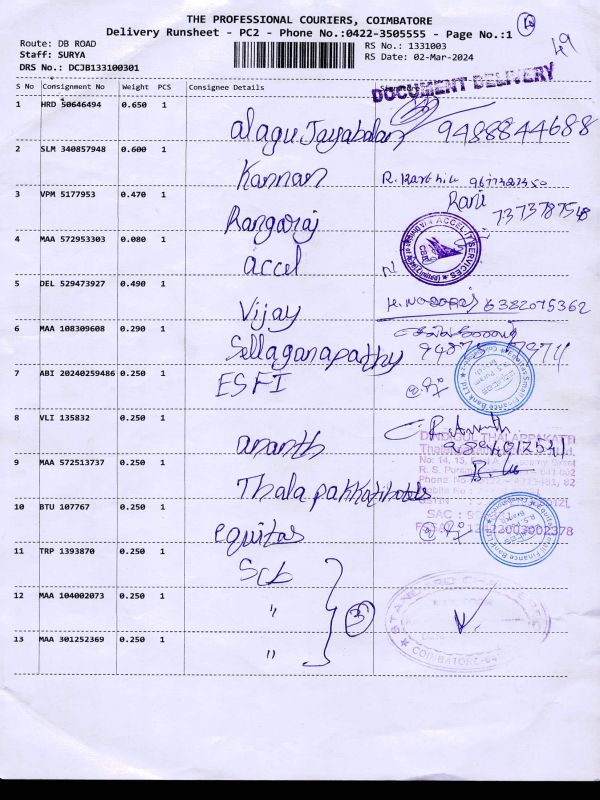 THE PROFESSIONAL COURIERS, COIMBATORE
Delivery Runsheet - PC2 - Phone No.:0422-3505555 - Page No.:1
Route: DB ROAD
RS No.: 1331003
Staff: SURYA
RS Date: 02-Mar-2024
DRS No.: DCJB133100301
49
DOCUMENT DELIVERY
S No Consignment No Weight PCS Consignee Details Signature
1 HRD 50646494 0.650 1
alagu Jayabalan 9488844688
2 SLM 340857948 0.600 1
Kannan R. Karthik
3 VPM 5177953 0.470 1
Rangaraj Rani 7373787548
4 MAA 572953303 0.080 1
accel
ACCEL IT SERVICES
5 DEL 529473927 0.490 1
Vijay 6382075362
6 MAA 108309608 0.290 1
Sellaganapathy
7 ABI 20240259486 0.250 1
ESFI
Small Finance Bank Ltd
8 VLI 135832 0.250 1
ananth
DINDIGUL THALAPPAKATTI
9 MAA 572513737 0.250 1
Thalapakkatihotels
R. S. Puram
10 BTU 107767 0.250 1
equitas
SAC :
Equitas Small Finance Bank Ltd
11 TRP 1393870 0.250 1
Scb
12 MAA 104002073 0.250 1
" 3
13 MAA 301252369 0.250 1
"
COIMBATORE